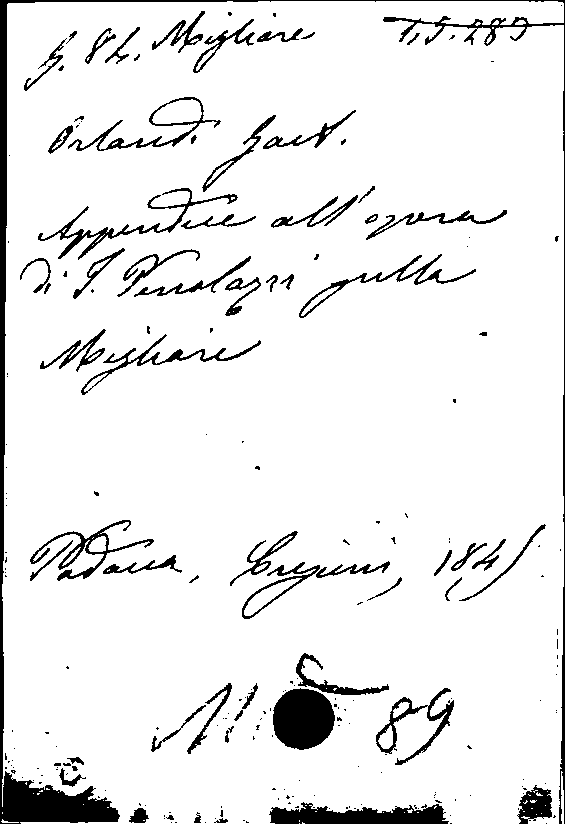 G. 84. Migliare T.5.289
Orlandi Gaet.
Appendice all'opera
di J. Penolazzi sulla
Migliare
Padova, Crescini, 1845
M 89